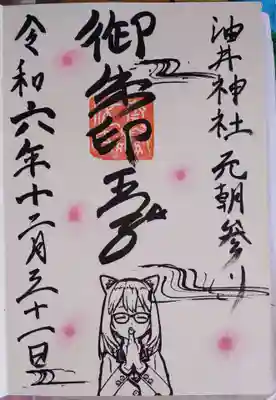 油井神社 元朝参り
御朱印
令和六年十二月三十一日